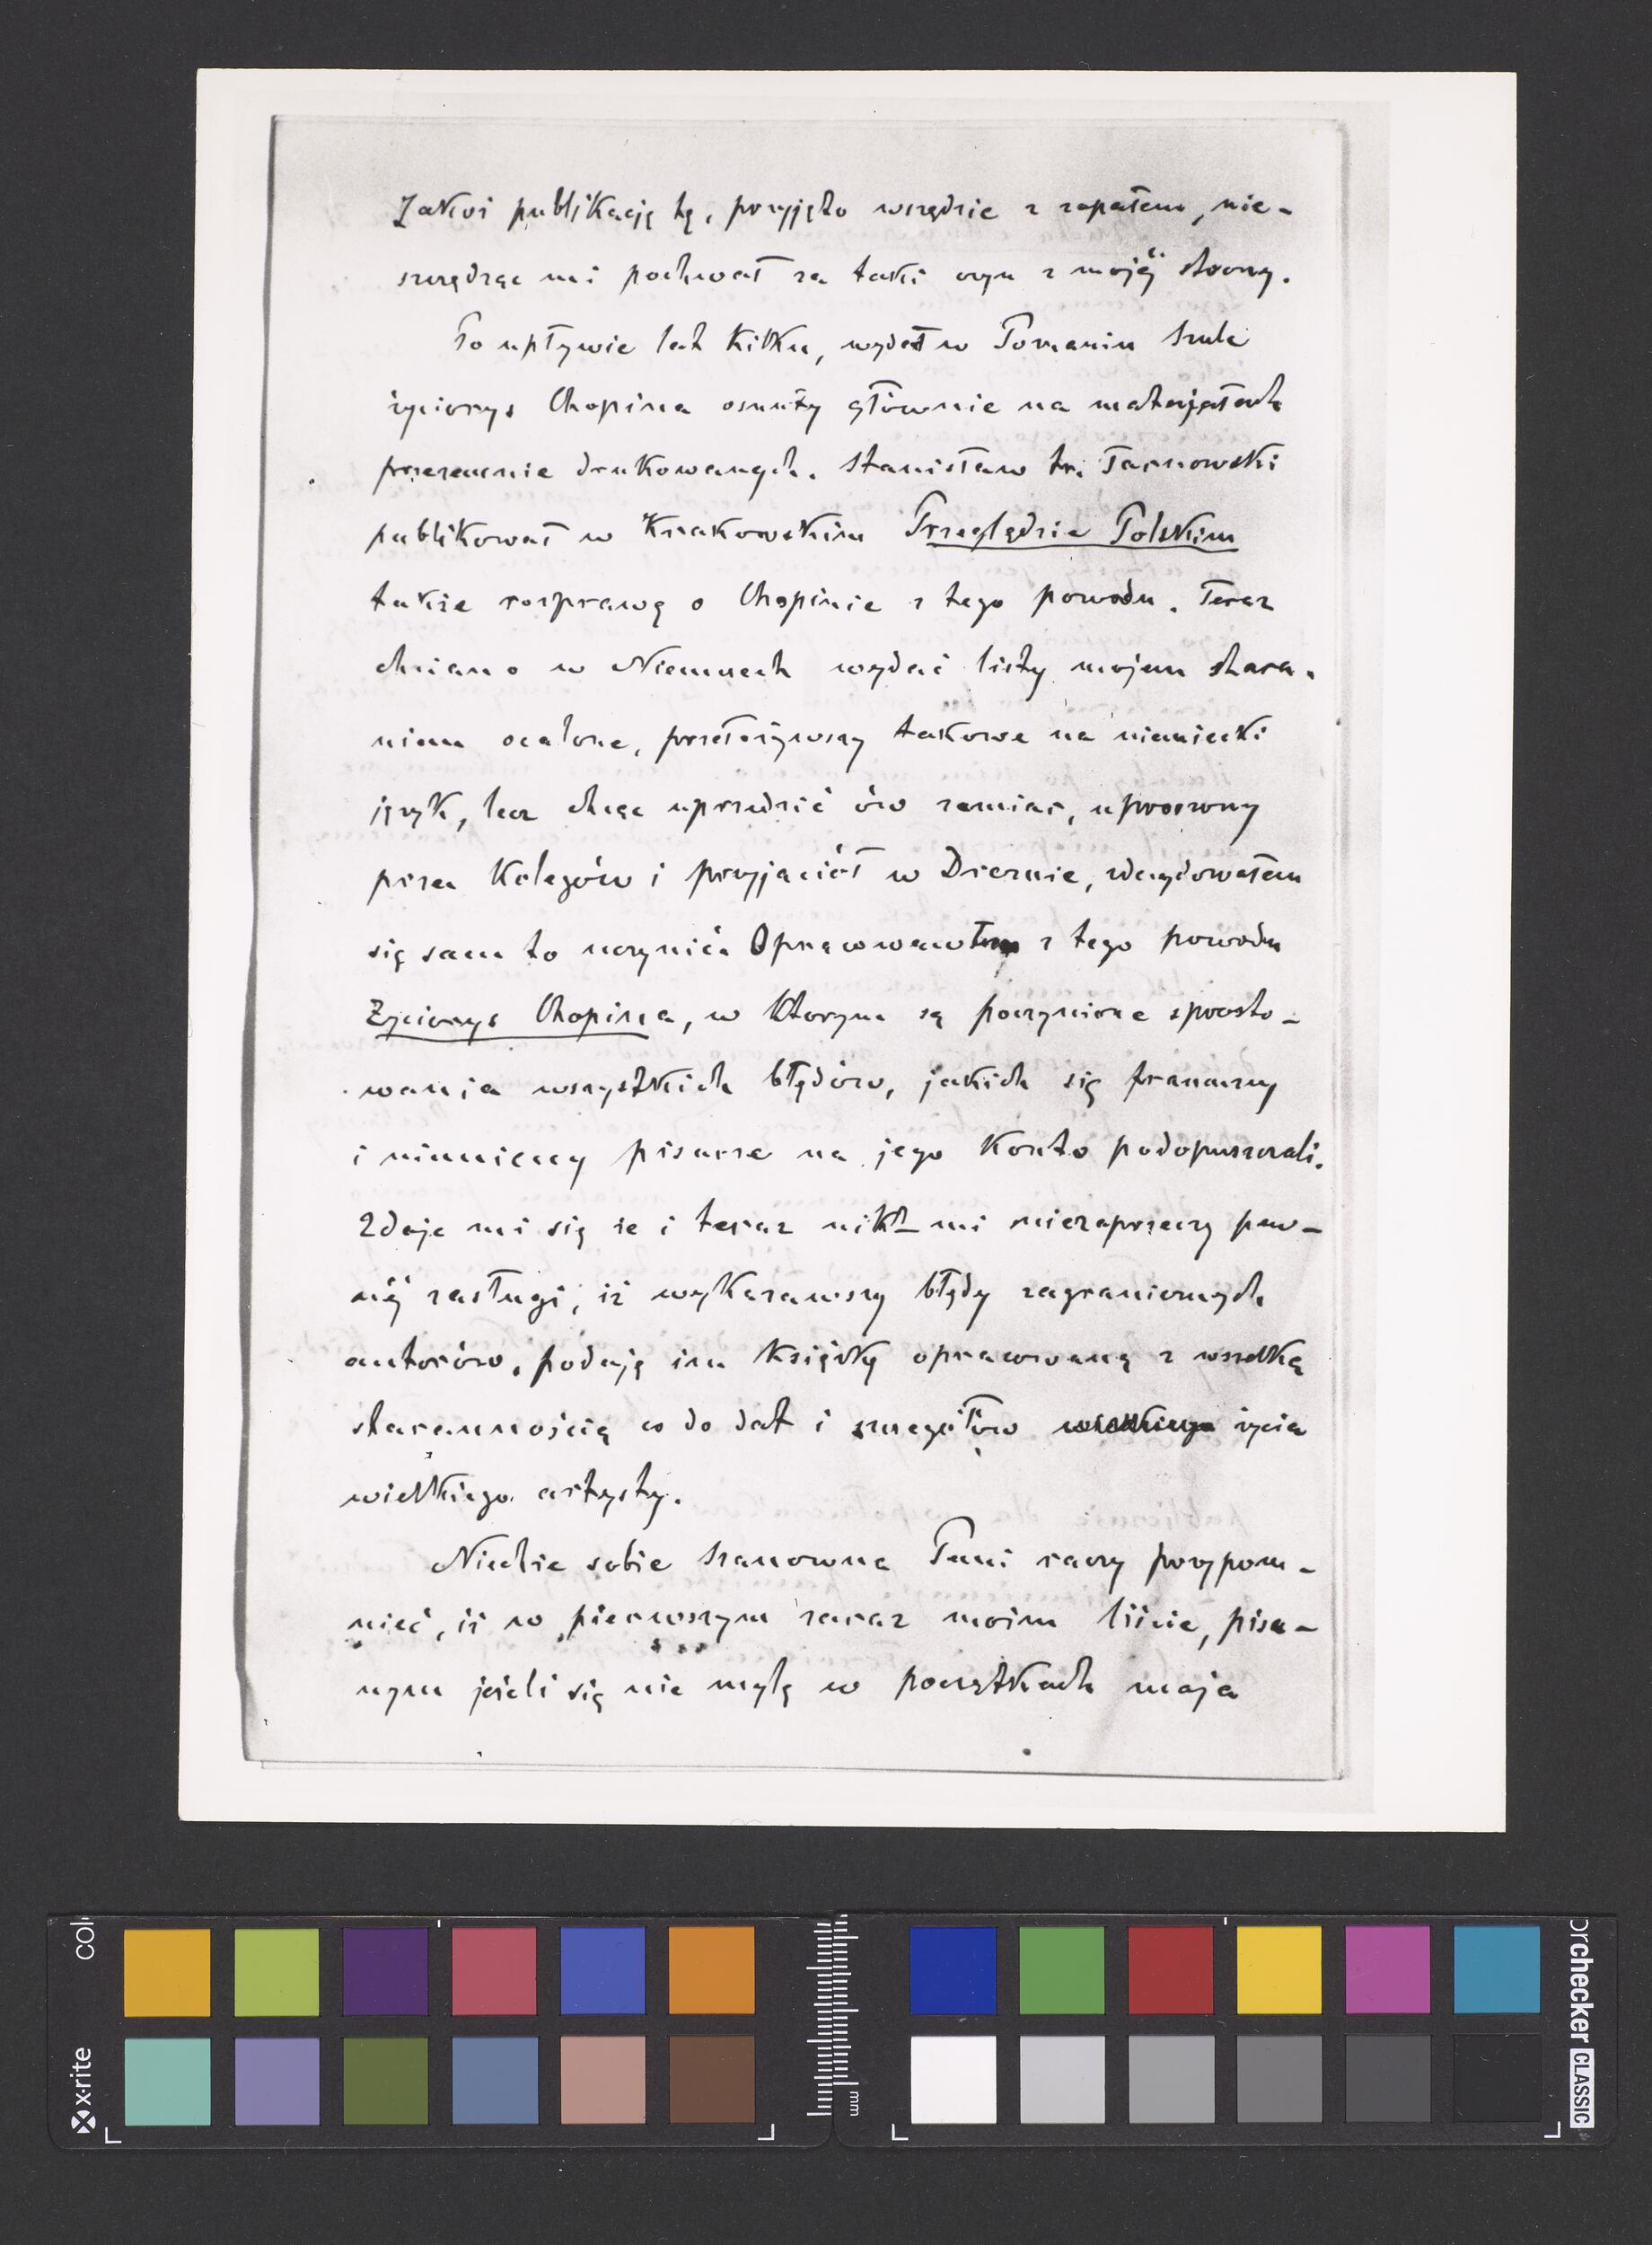 Jakoż publikację tę, przyjęto wszędzie z zapałem, nie-
szczędząc mi pochwał za taki czyn z mojéj strony.
Po upływie lat kilku, wydał w Poznaniu Szulc
życiorys Chopina osnuty głównie na materjałach
przezemnie drukowanych. Stanisław hr. Tarnowski
publikował w Krakowskim Przeglądzie Polskim
także rozprawę o Chopinie z tego powodu. Teraz
chciano w Niemczech wydać listy mojem stara-
niem ocalone, przełożywszy takowe na niemiecki
język, lecz chcąc uprzedzić ów zamiar, uproszony
przez kolegów i przyjaciół w Dreznie, zdecydowałem
się sam to uczynić. Opracowałem z tego powodu
Życiorys Chopina, w którym są poczynione sprosto-
wania wszystkich błędów, jakich się francuzcy
i niemieccy pisarze na jego konto podopuszczali.
Zdaje mi się że i teraz nikt mi niezaprzeczy pew-
néj zasługi, iż wykazawszy błędy zagranicznych
autorów, podaję im książkę opracowaną z wszelką
starannością co do dat i szczegółów życia
wielkiego artysty.
Niechże sobie Szanowna Pani raczy przypom-
nieć, iż w pierwszym zaraz moim liście, pisa-
nym jeżeli się nie mylę w początkach maja
x-rite
col
mm
orchecker CLASSIC